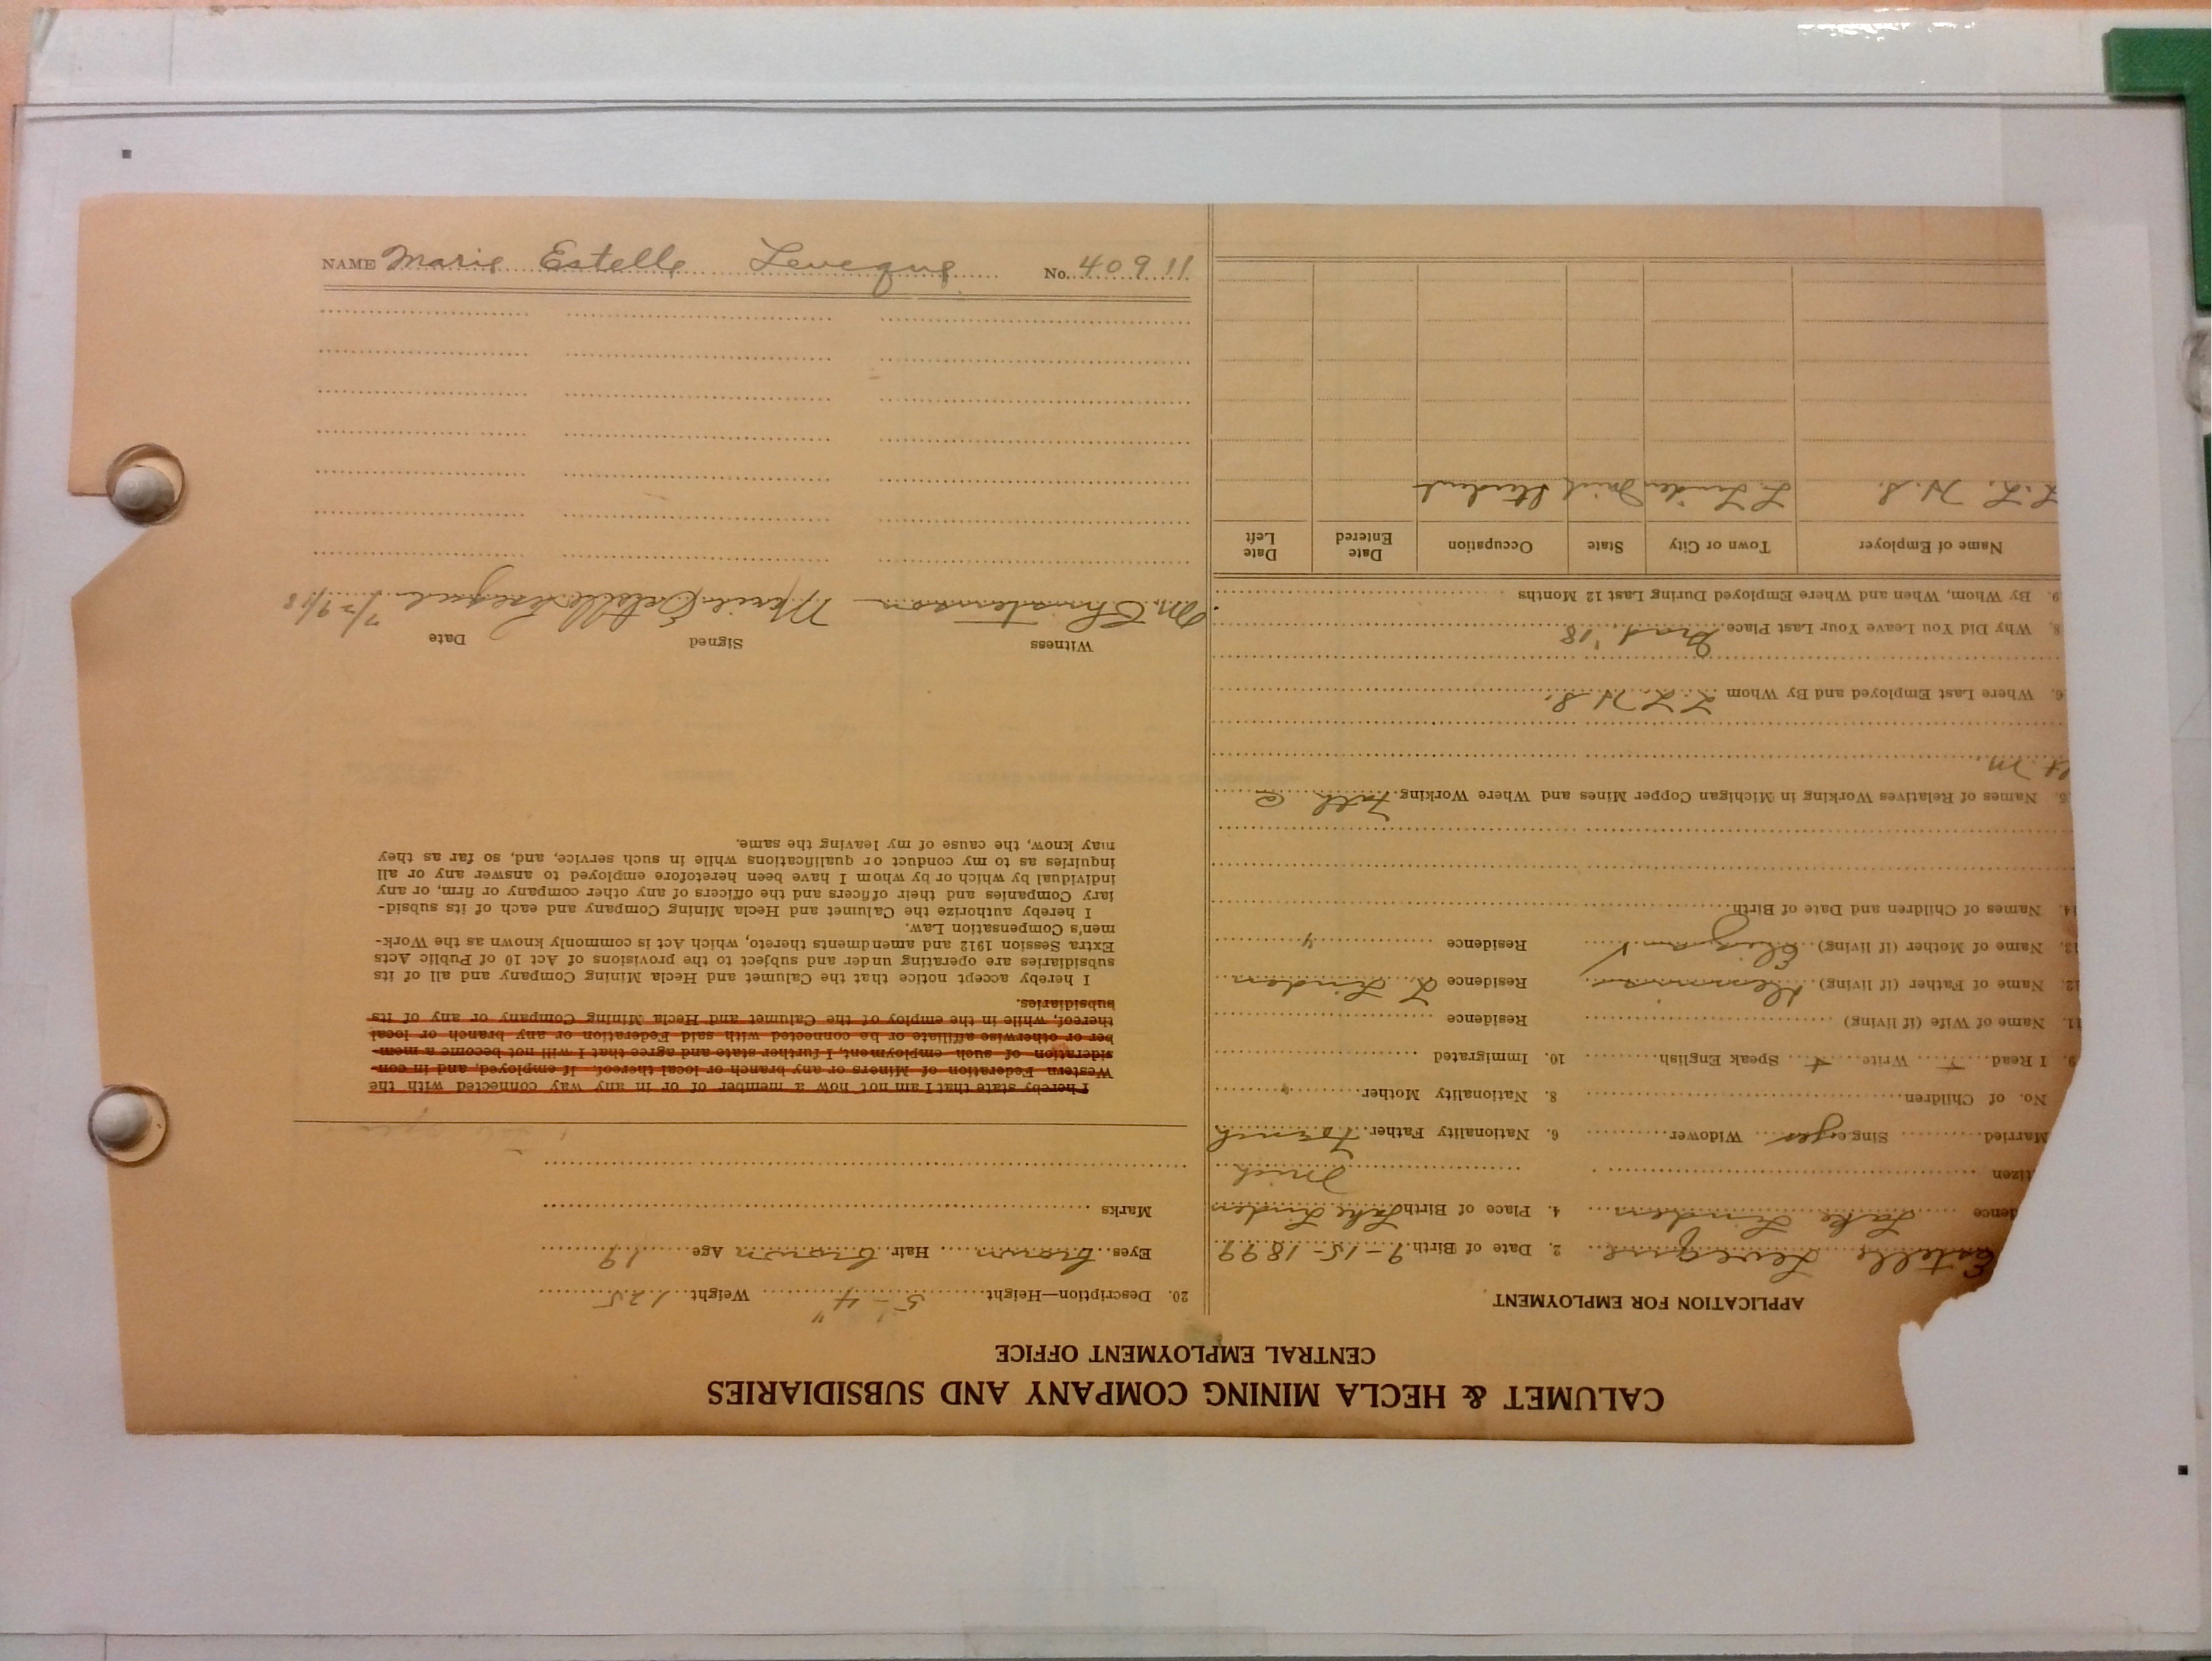 NAME Marie Estelle Leveque No. 40911
CALUMET & HECLA MINING COMPANY AND SUBSIDIARIES
CENTRAL EMPLOYMENT OFFICE
APPLICATION FOR EMPLOYMENT
Estelle Leveque 2. Date of Birth 9-15-1899
dence Lake Linden 4. Place of Birth Lake Linden
tizen Mich
Married Single yes Widower 6. Nationality Father French
No. of Children 8. Nationality Mother "
9. I Read + Write + Speak English + 10. Immigrated
11. Name of Wife (if living) Residence
12. Name of Father (if living) Residence L. Linden
13. Name of Mother (if living) Residence
14. Names of Children and Date of Birth
15. Names of Relatives Working in Michigan Copper Mines and Where Working Fath @
6. Where Last Employed and By Whom L L H S.
8. Why Did You Leave Your Last Place Grad '18
9. By Whom, When and Where Employed During Last 12 Months
Name of Employer Town or City State Occupation Date Entered Date Left
L. L. H. S. L. Linden Mich Student
20. Description—Height 5'-4" Weight 125
Eyes brown Hair brown Age 19
Marks
I hereby state that I am not now a member of or in any way connected with the
Western Federation of Miners or any branch or local thereof. If employed, and in con-
sideration of such employment, I further state and agree that I will not become a mem-
ber or otherwise affiliate or be connected with said Federation or any branch or local
thereof, while in the employ of the Calumet and Hecla Mining Company or any of its
subsidiaries.
I hereby accept notice that the Calumet and Hecla Mining Company and all of its
subsidiaries are operating under and subject to the provisions of Act 10 of Public Acts
Extra Session 1912 and amendments thereto, which Act is commonly known as the Work-
men's Compensation Law.
I hereby authorize the Calumet and Hecla Mining Company and each of its subsid-
iary Companies and their officers and the officers of any other company or firm, or any
individual by which or by whom I have been heretofore employed to answer any or all
inquiries as to my conduct or qualifications while in such service, and, so far as they
may know, the cause of my leaving the same.
Witness Signed Date
M. Christenson Marie Estelle Leveque 7/29/18